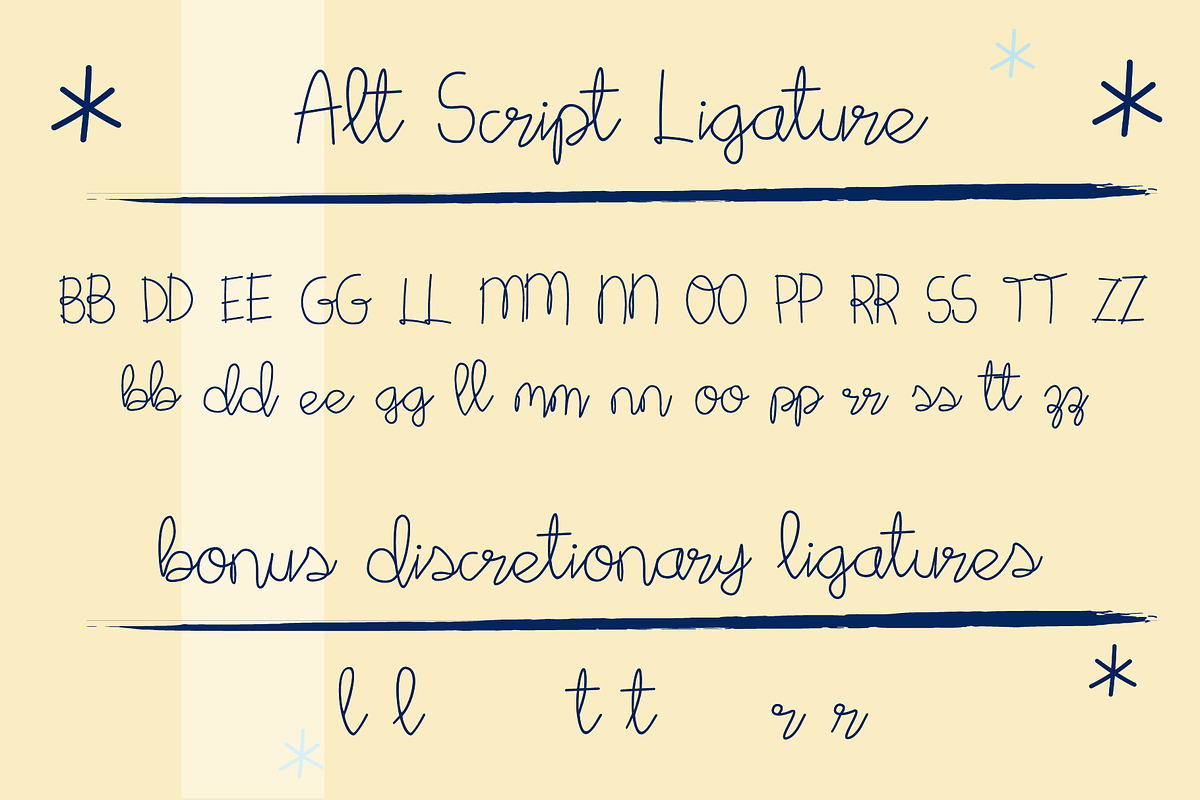 Alt Script Ligature
BB DD EE GG LL MM NN OO PP RR SS TT ZZ
bb dd ee gg ll mm nn oo pp rr ss tt zz
bonus discretionary ligatures
l l t t r r